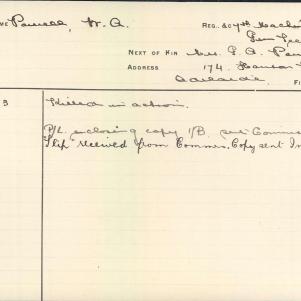 ME Powell, W. A.
REG. &c 7th Machin
Gun
NEXT OF KIN Mrs. E. A. Pow
ADDRESS 174, Hanson
Adelaide.
FI
3 Killed in action.
P/L. enclosing copy 1/B. sent Commi
Slip received from Commrs. Copy sent